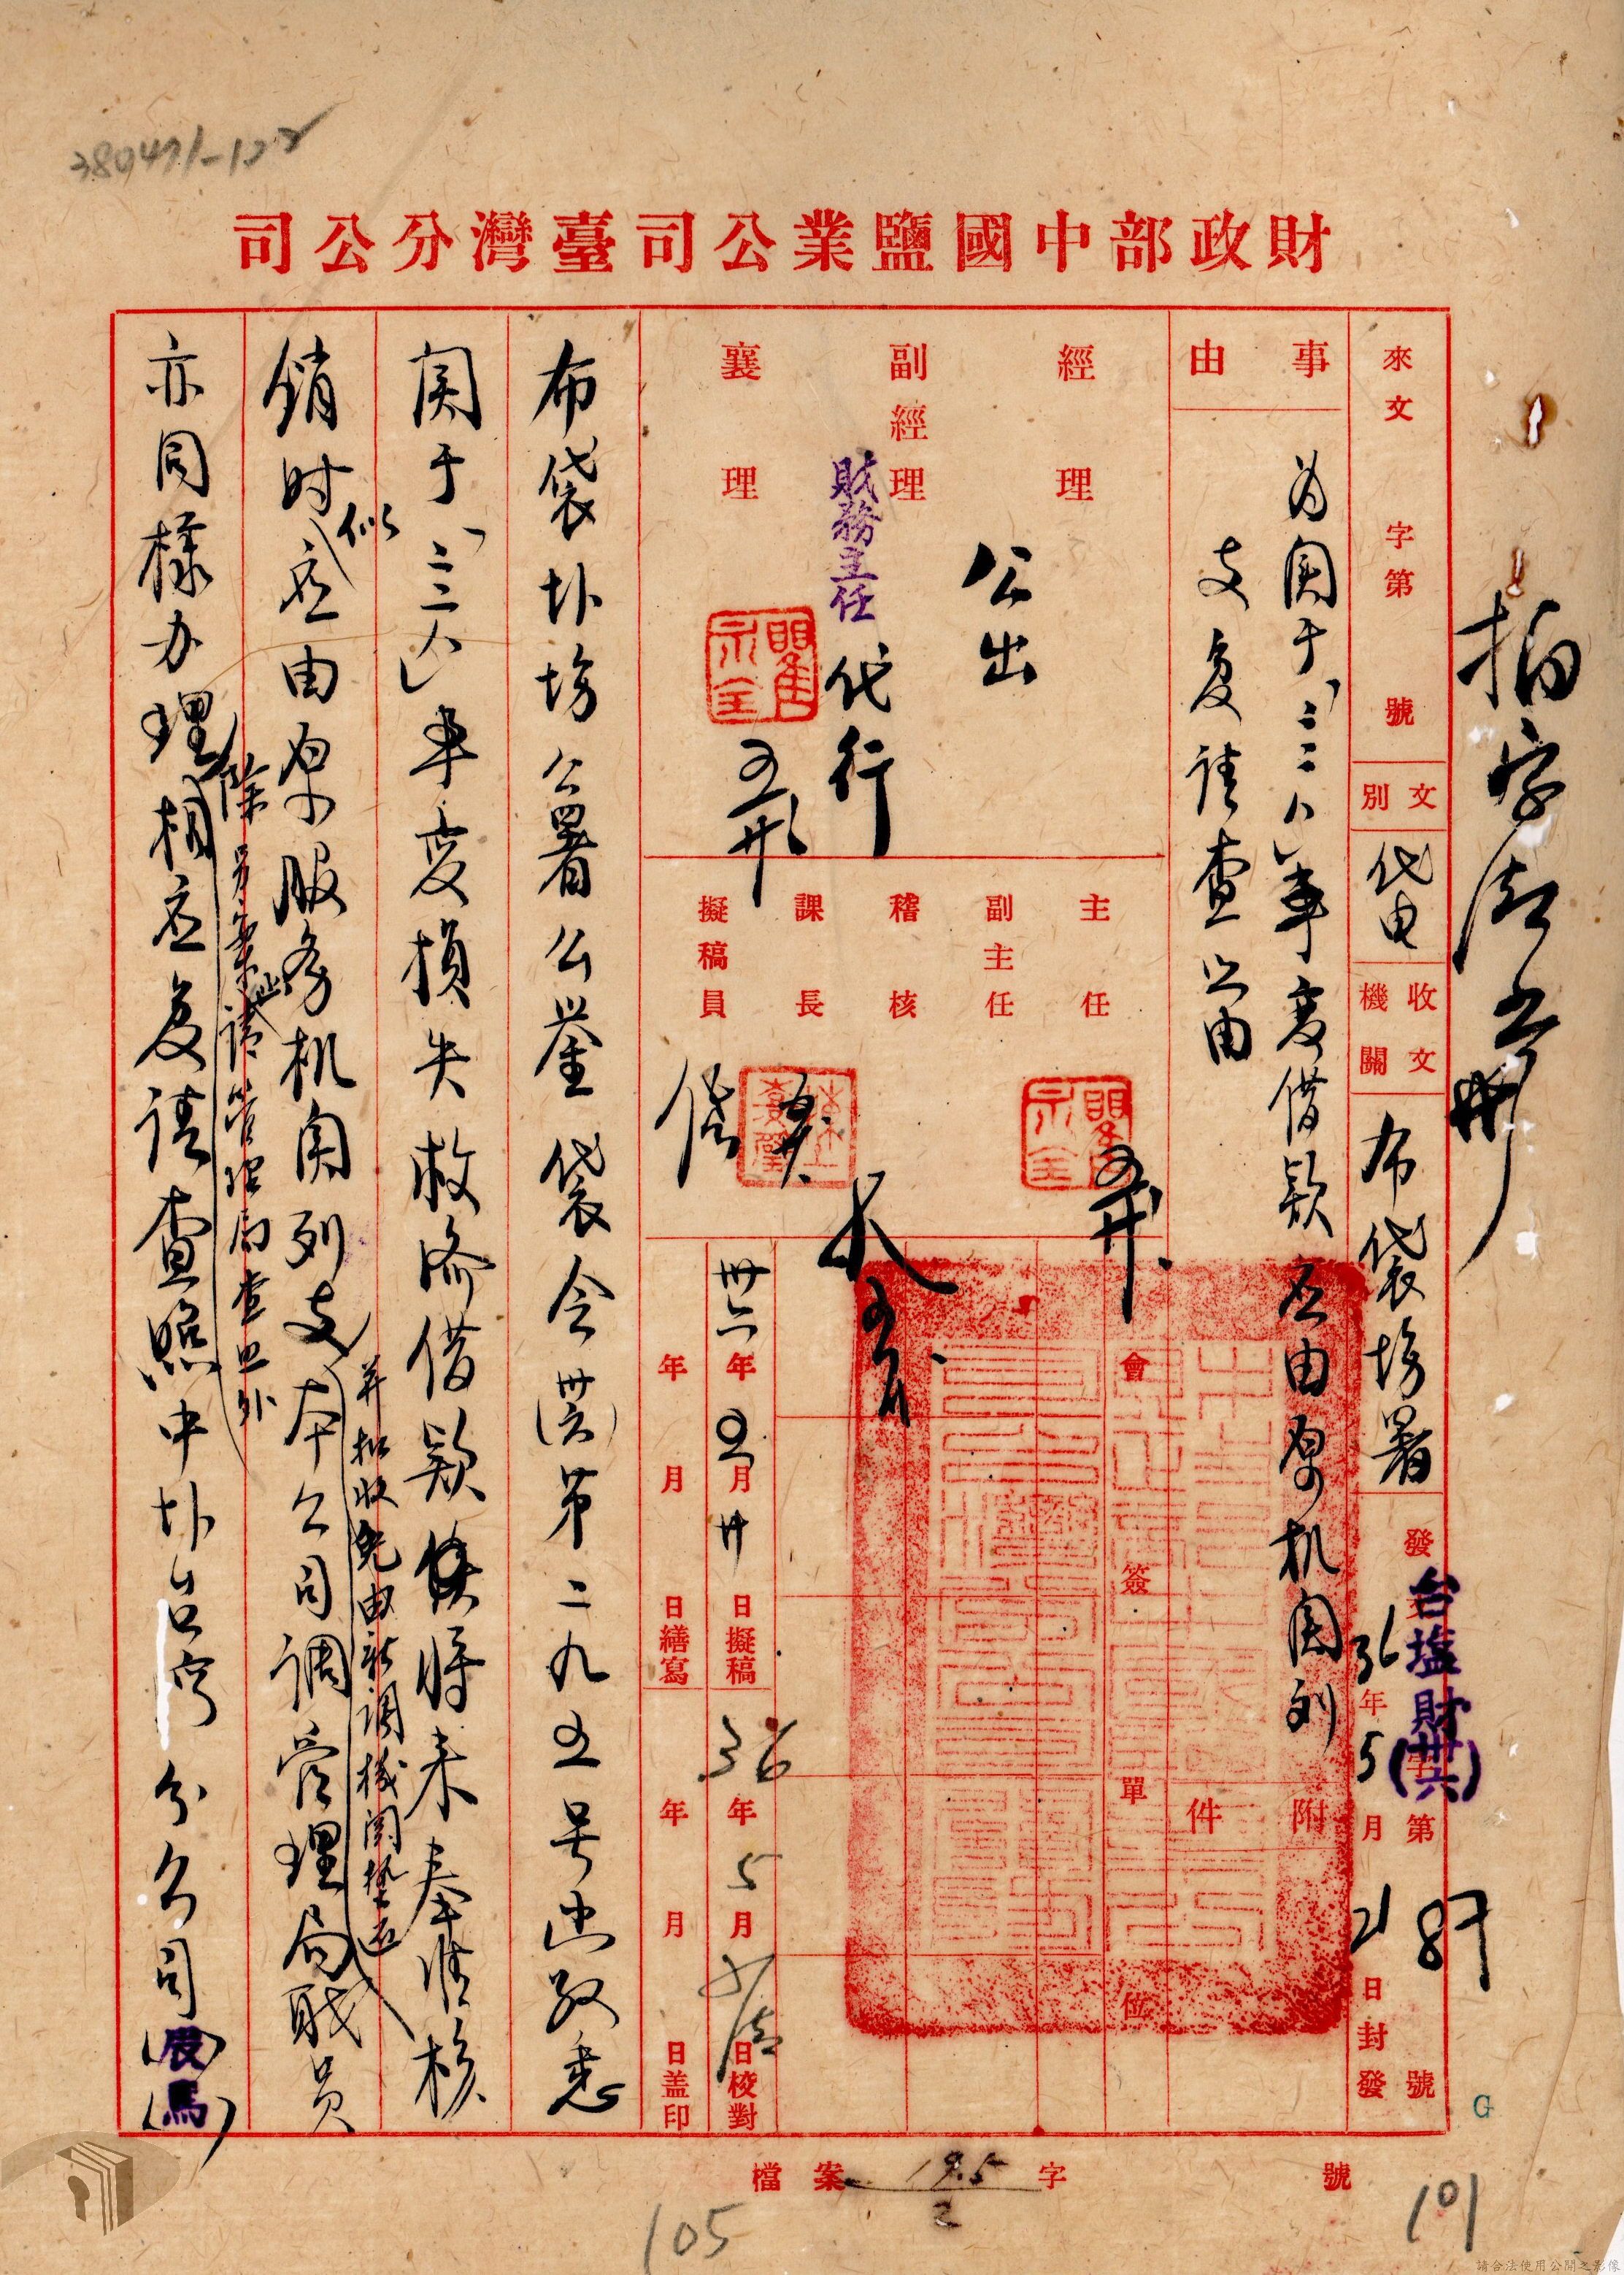 380471-122
財政部中國鹽業公司臺灣分公司
來文 字第 號
文別 代電
收文機關 布袋場署
發 台塩財(卅六)字第 89 號
36年5月21日封發
事由
為関于「二二八」事变借款应由原机関列
支复請查照由
附件
經理 公出
副經理 財務主任 代行
襄理
主任
副主任
稽核
課長
擬稿員
會簽單位
卅六年五月廿日擬稿
36年5月 日校對
年 月 日繕寫
年 月 日蓋印
布袋塩場公署公鉴袋会(卅六)第二九五号函敬悉
関于「二二八」事变損失救济借款俟将来奉准核
銷时似应由原服务机関列支
并批收免由新調機関墊还
本公司調管理局职员
亦同樣办理
除另案電請管理局查照外
相应复請查照中塩台湾分公司(辰馬)
檔案 195/2 字 號
105
101
G
請合法使用公開之影像